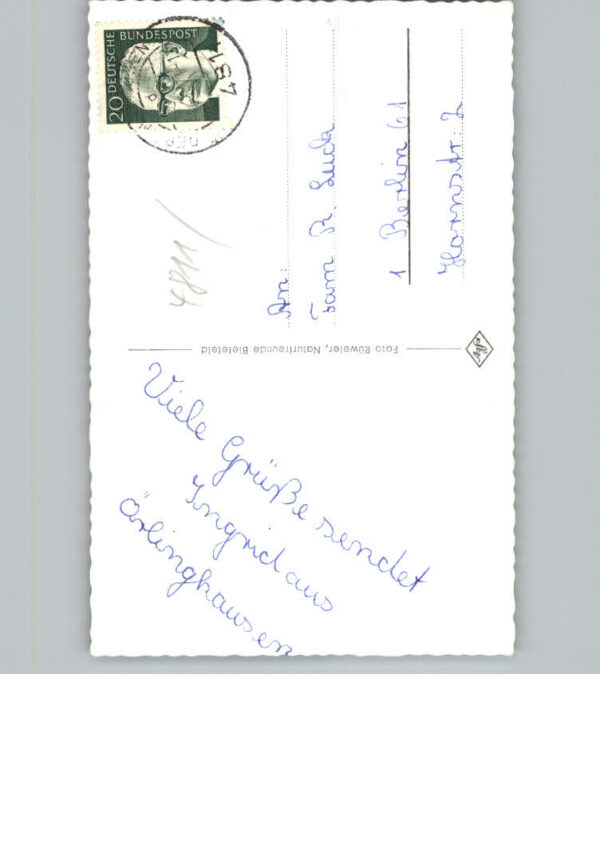 Viele Grüße sendet
Ingrid aus
Örlinghausen
Foto Rüweler, Naturfreunde Bielefeld
20 DEUTSCHE BUNDESPOST
481
4811
An:
Fam R. Luck
1 Berlin 61
Hornstr. 2